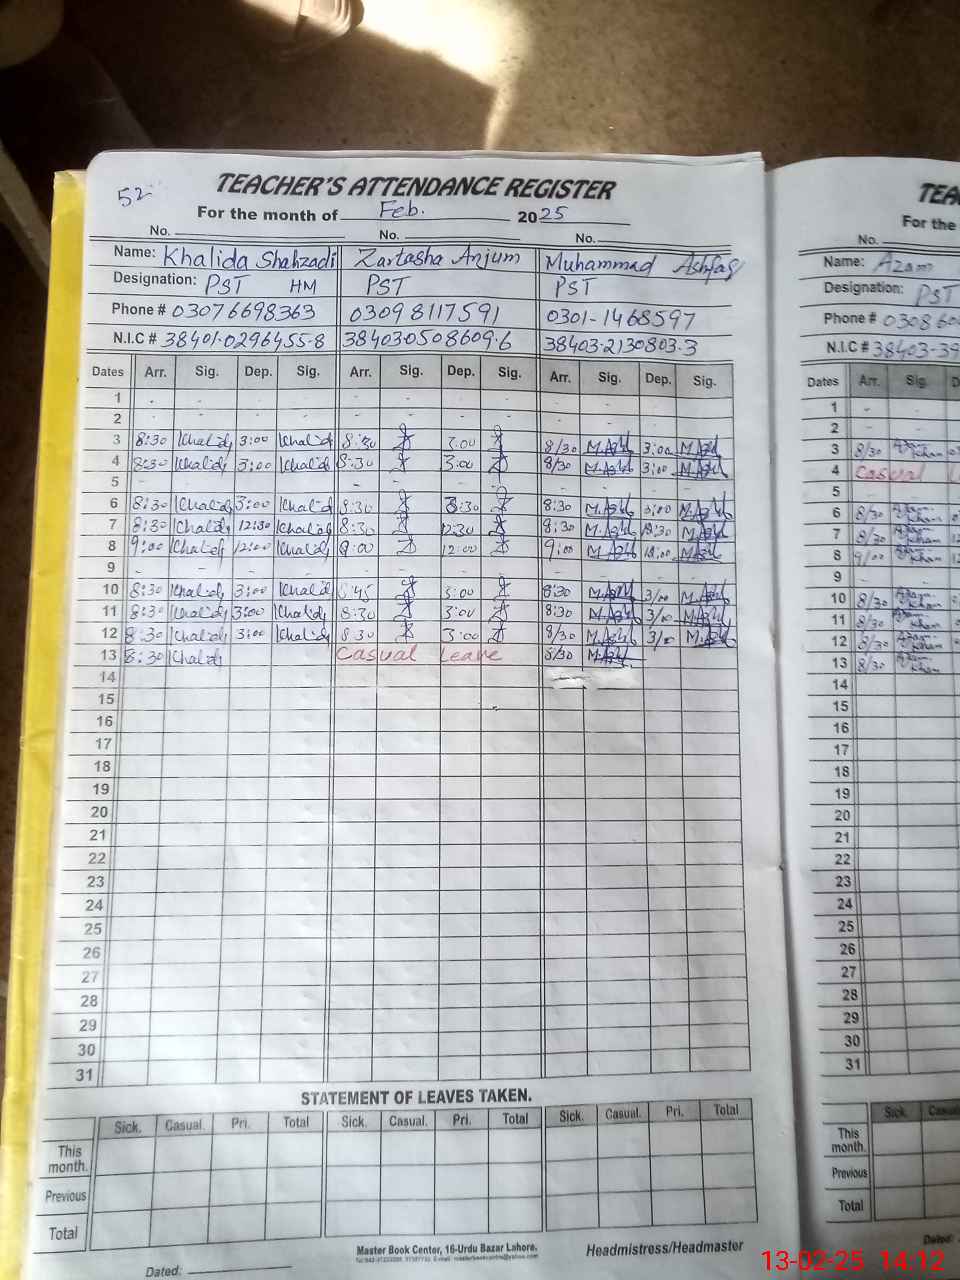 52
TEACHER'S ATTENDANCE REGISTER
For the month of Feb. 2025
No. No. No.
Name: Khalida Shahzadi Zartasha Anjum Muhammad Ashfaq
Designation: PST HM PST PST
Phone # 03076698363 03098117591 0301-1468597
N.I.C # 38401-0296455-8 38403-0508609-6 38403-2130803-3
Dates Arr. Sig. Dep. Sig. Arr. Sig. Dep. Sig. Arr. Sig. Dep. Sig.
1 - - - - - -
2 - - - - - -
3 8:30 Khalid 3:00 Khalid 8:30 3:00 8/30 M.Ash 3:00 M.Ash
4 8:30 Khalid 3:00 Khalid 8:30 3:00 8/30 M.Ash 3:00 M.Ash
5 - - - - - -
6 8:30 Khalid 3:00 Khalid 8:30 3:30 8:30 M.Ash 3:00 M.Ash
7 8:30 Khalid 12:30 Khalid 8:30 12:30 8:30 M.Ash 12:30 M.Ash
8 9:00 Khalid 12:00 Khalid 9:00 12:00 9:00 M.Ash 12:00 M.Ash
9 - - - - - -
10 8:30 Khalid 3:00 Khalid 3:00 8:30 M.Ash 3/00 M.Ash
11 8:30 Khalid 3:00 Khalid 8:30 3:00 8:30 M.Ash 3/00 M.Ash
12 8:30 Khalid 3:00 Khalid 8:30 3:00 8/30 M.Ash 3/00 M.Ash
13 8:30 Khalid Casual Leave 8/30 M.Ash
14
15
16
17
18
19
20
21
22
23
24
25
26
27
28
29
30
31
STATEMENT OF LEAVES TAKEN.
Sick. Casual. Pri. Total Sick. Casual. Pri. Total Sick. Casual. Pri. Total
This month.
Previous
Total
Master Book Center, 16-Urdu Bazar Lahore.
Headmistress/Headmaster
Dated:
TEA
For the
No.
Name: Azam
Designation: PST
Phone # 030860
N.I.C # 38403-39
Dates Arr. Sig. D
1 - -
2 - -
3 8/30 Azam Khan
4 Casual L
5
6 8/30 Azam Khan
7 8/30 Azam Khan
8 9/00 Azam Khan
9 - -
10 8/30 Azam Khan
11 8/30 Azam Khan
12 8/30 Azam Khan
13 8/30 Azam Khan
14
15
16
17
18
19
20
21
22
23
24
25
26
27
28
29
30
31
Sick. Casual
This month.
Previous
Total
Dated:
13-02-25 14:12